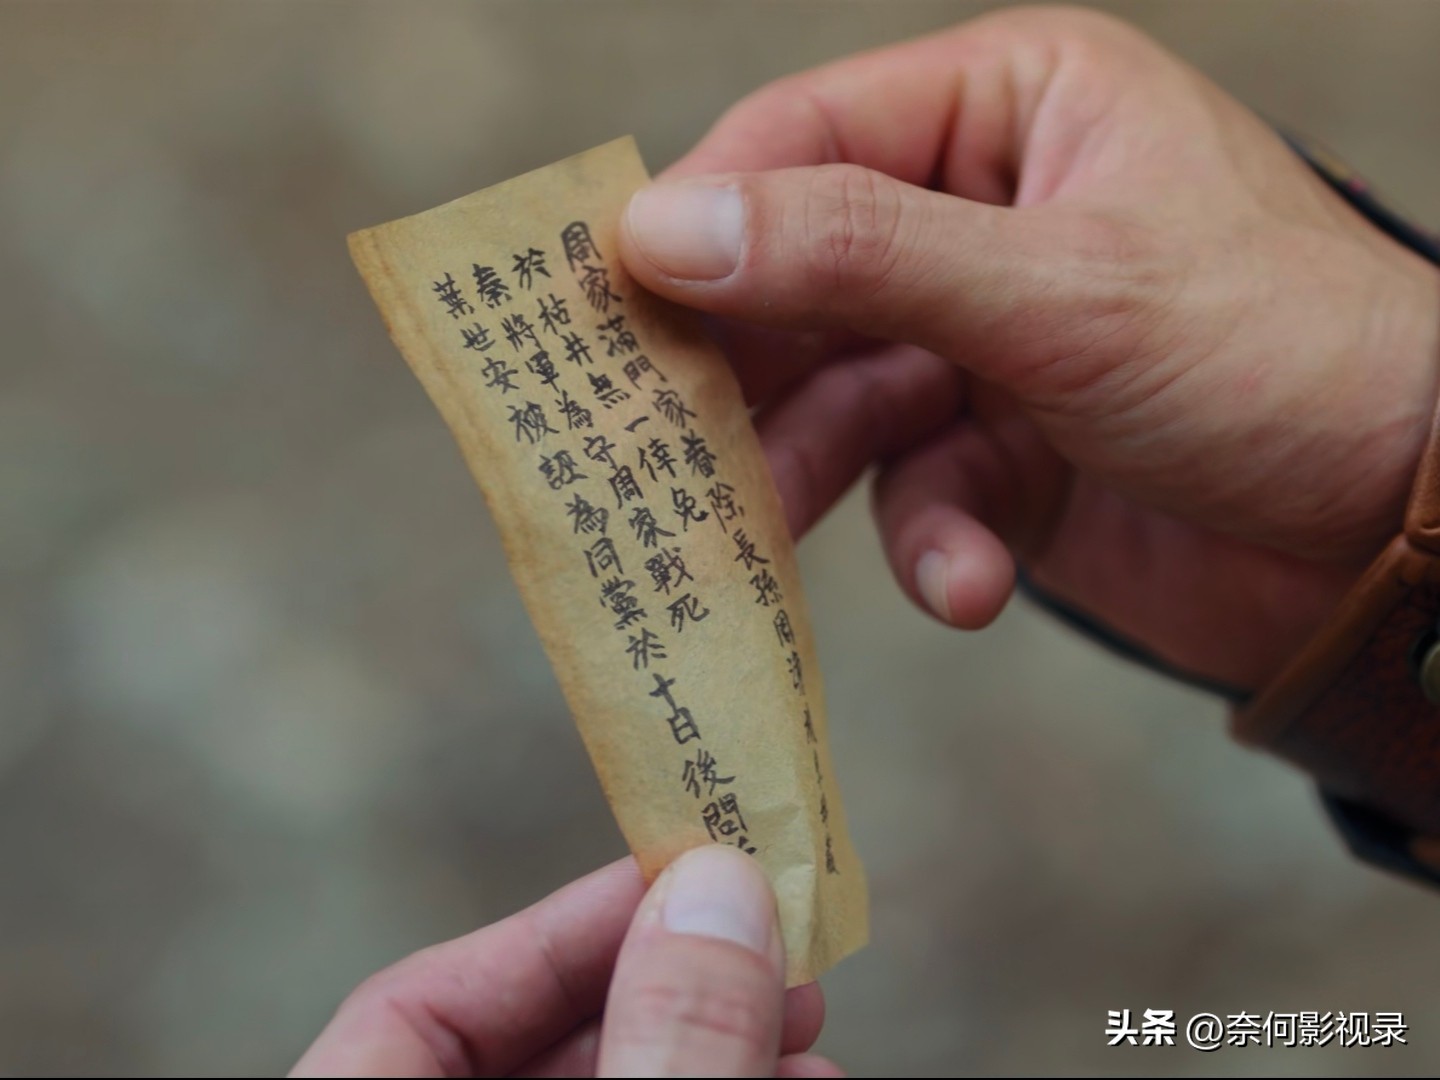 周家滿門家眷除長孫周
於枯井無一倖免
秦將軍為守周家戰死
葉世安被誣為同黨於十日後問
头条 @奈何影视录